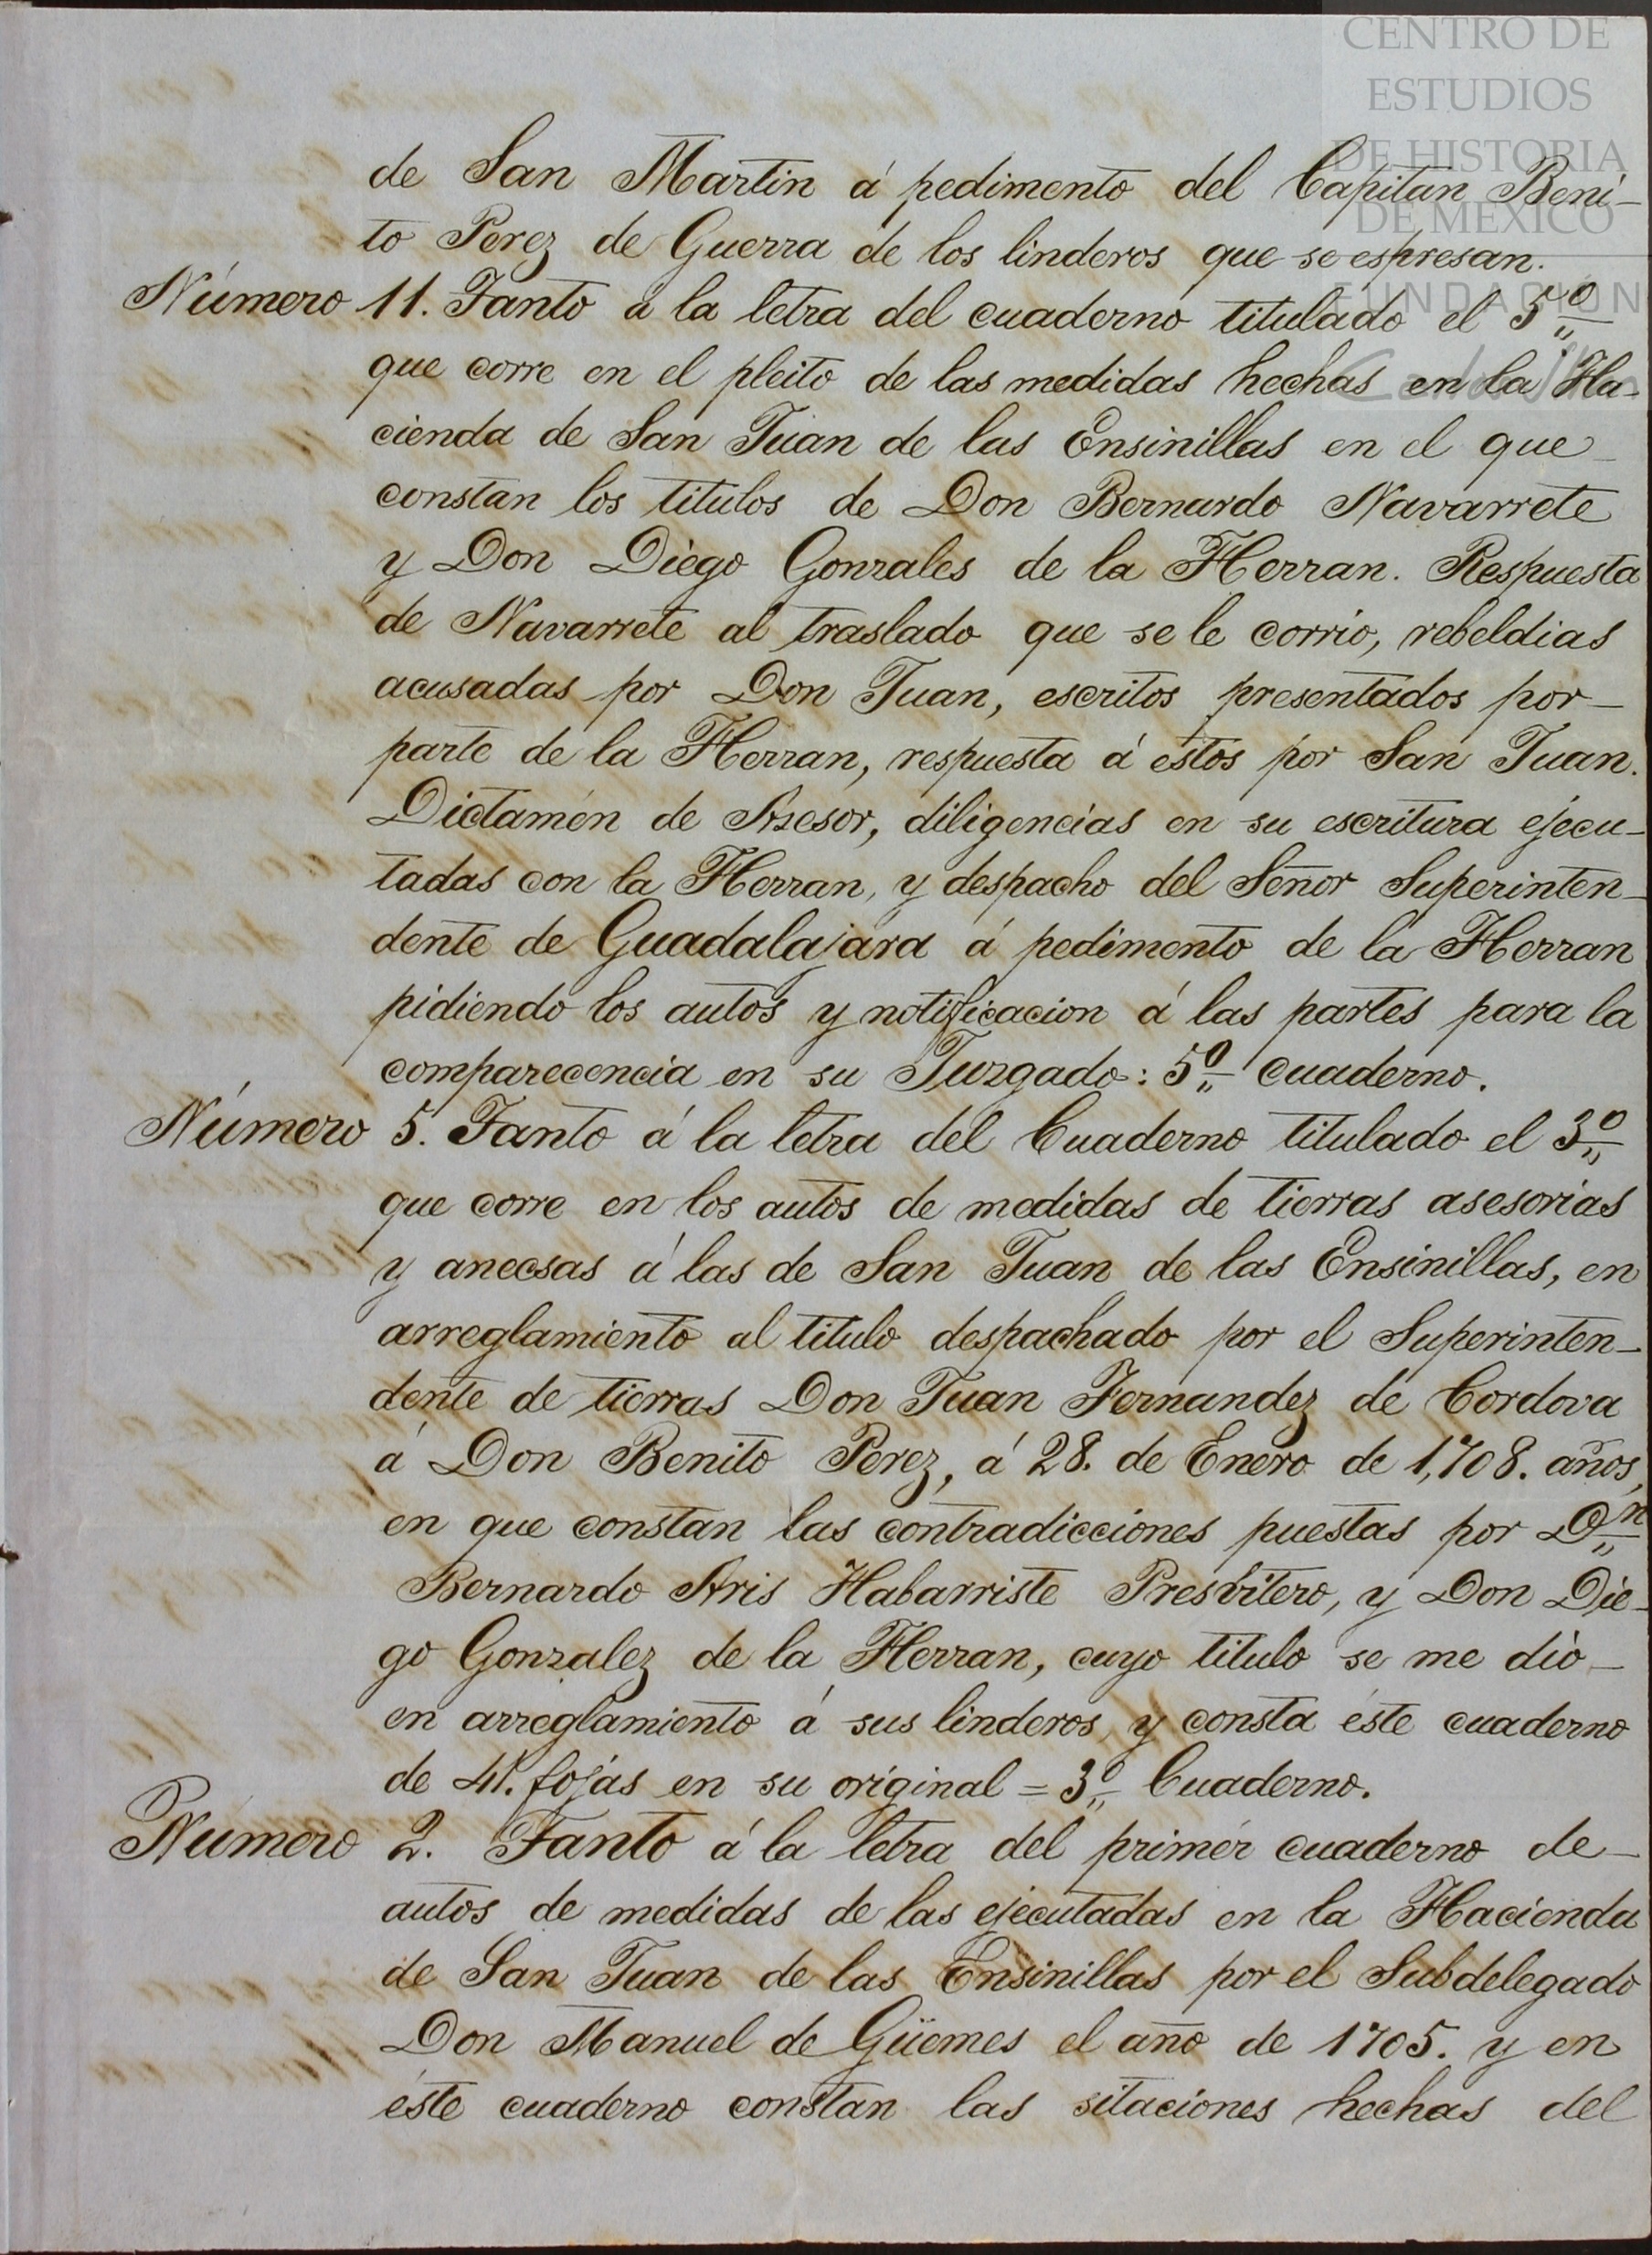 CENTRO DE
ESTUDIOS
DE HISTORIA
DE MEXICO
FUNDACION
de San Martin á pedimento del Capitan Beni-
to Perez de Guerra de los linderos que se espresan.
Número 11. Tanto a la letra del cuaderno titulado el 5º
que corre en el pleito de las medidas hechas en la Ha-
cienda de San Juan de las Ensinillas en el que
constan los titulos de Don Bernardo Navarrete
y Don Diego Gonzales de la Herran. Respuesta
de Navarrete al traslado que se le corrio, rebeldias
acusadas por Don Juan, escritos presentados por
parte de la Herran, respuesta á éstos por San Juan.
Dictamén de Asesor, diligencias en su escritura ejecu-
tadas con la Herran, y despacho del Señor Superinten-
dente de Guadalajara á pedimento de la Herran
pidiendo los autos y notificacion á las partes para la
comparecencia en su Juzgado: 5º cuaderno.
Número 5. Tanto á la letra del Cuaderno titulado el 3º
que corre en los autos de medidas de tierras asesorias
y anecsas á las de San Juan de las Ensinillas, en
arreglamiento al titulo despachado por el Superinten-
dente de tierras Don Juan Fernandez de Cordova
á Don Benito Perez, á 28. de Enero de 1,708. años,
en que constan las contradicciones puestas por Dⁿ
Bernardo Aris Habarriste Presbitero, y Don Die-
go Gonzalez de la Herran, cuyo titulo se me dió
en arreglamiento á sus linderos, y consta éste cuaderno
de 41. fojas en su original = 3º Cuaderno.
Número 2. Tanto á la letra del primér cuaderno de
autos de medidas de las ejecutadas en la Hacienda
de San Juan de las Ensinillas por el Subdelegado
Don Manuel de Güemes el año de 1705. y en
éste cuaderno constan las sitaciones hechas del